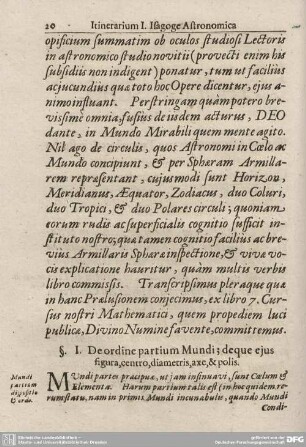 20 Itinerarium I. Isagoge Astronomica
opificium summatim ob oculos studiosi Lectoris
in astronomico studio novitii (provecti enim his
subsidiis non indigent) ponatur, tum ut facilius
ac jucundius quæ toto hoc Opere dicentur, ejus a-
nimo influant. Perstringam quàm potero bre-
vissimè omnia, fusius de iisdem acturus, DEO
dante, in Mundo Mirabili quem mente agito.
Nil ago de circulis, quos Astronomi in Cœlo ac
Mundo concipiunt, & per Sphæram Armilla-
rem repræsentant, cujusmodi sunt Horizon,
Meridianus, Æquator, Zodiacus, duo Coluri,
duo Tropici, & duo Polares circuli; quoniam
eorum rudis ac superficialis cognitio sufficit in-
stituto nostro; quæ tamen cognitio facilius ac bre-
vius Armillaris Sphæræ inspectione, & vivæ vo-
cis explicatione hauritur, quàm multis verbis
libro commissis. Transcripsimus pleraque quæ
in hanc Prælusionem conjecimus, ex libro 7. Cur-
sus nostri Mathematici, quem propediem luci
publicæ, Divino Numine favente, committemus.
§. I. De ordine partium Mundi; deque ejus
figura, centro, diametris, axe, & polis.
Mundi
partium
digestio
& ordo.
MUndi partes præcipuæ, ut jam insinuavi, sunt Cœlum &
Elementa. Harum partium talis est (in hoc quidem re-
rum statu, nam in primis Mundi incunabulis, quando Mundi
Condi-